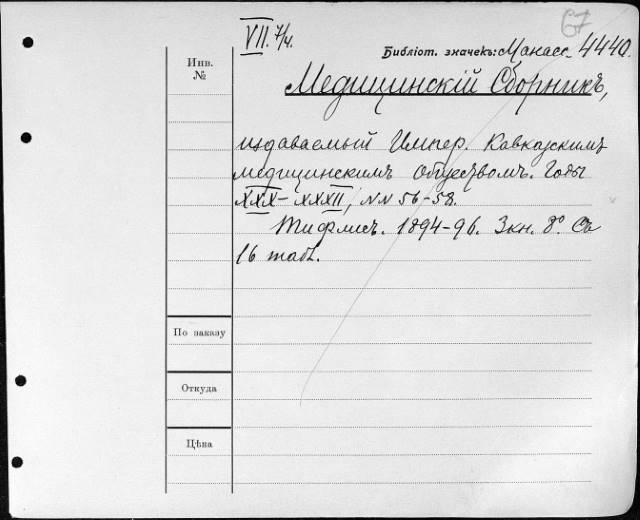 67
VII. 7/4.
Библіот. значекъ: Манасс. 4440.
Инв.
№
Медицинскій Сборникъ,
издаваемый Импер. Кавказскимъ
медицинскимъ Обществомъ. Годы
XXX–XXXII, NN 56–58.
Тифлисъ. 1894–96. 3кн. 8º. Съ
16 табл.
По заказу
Откуда
Цѣна